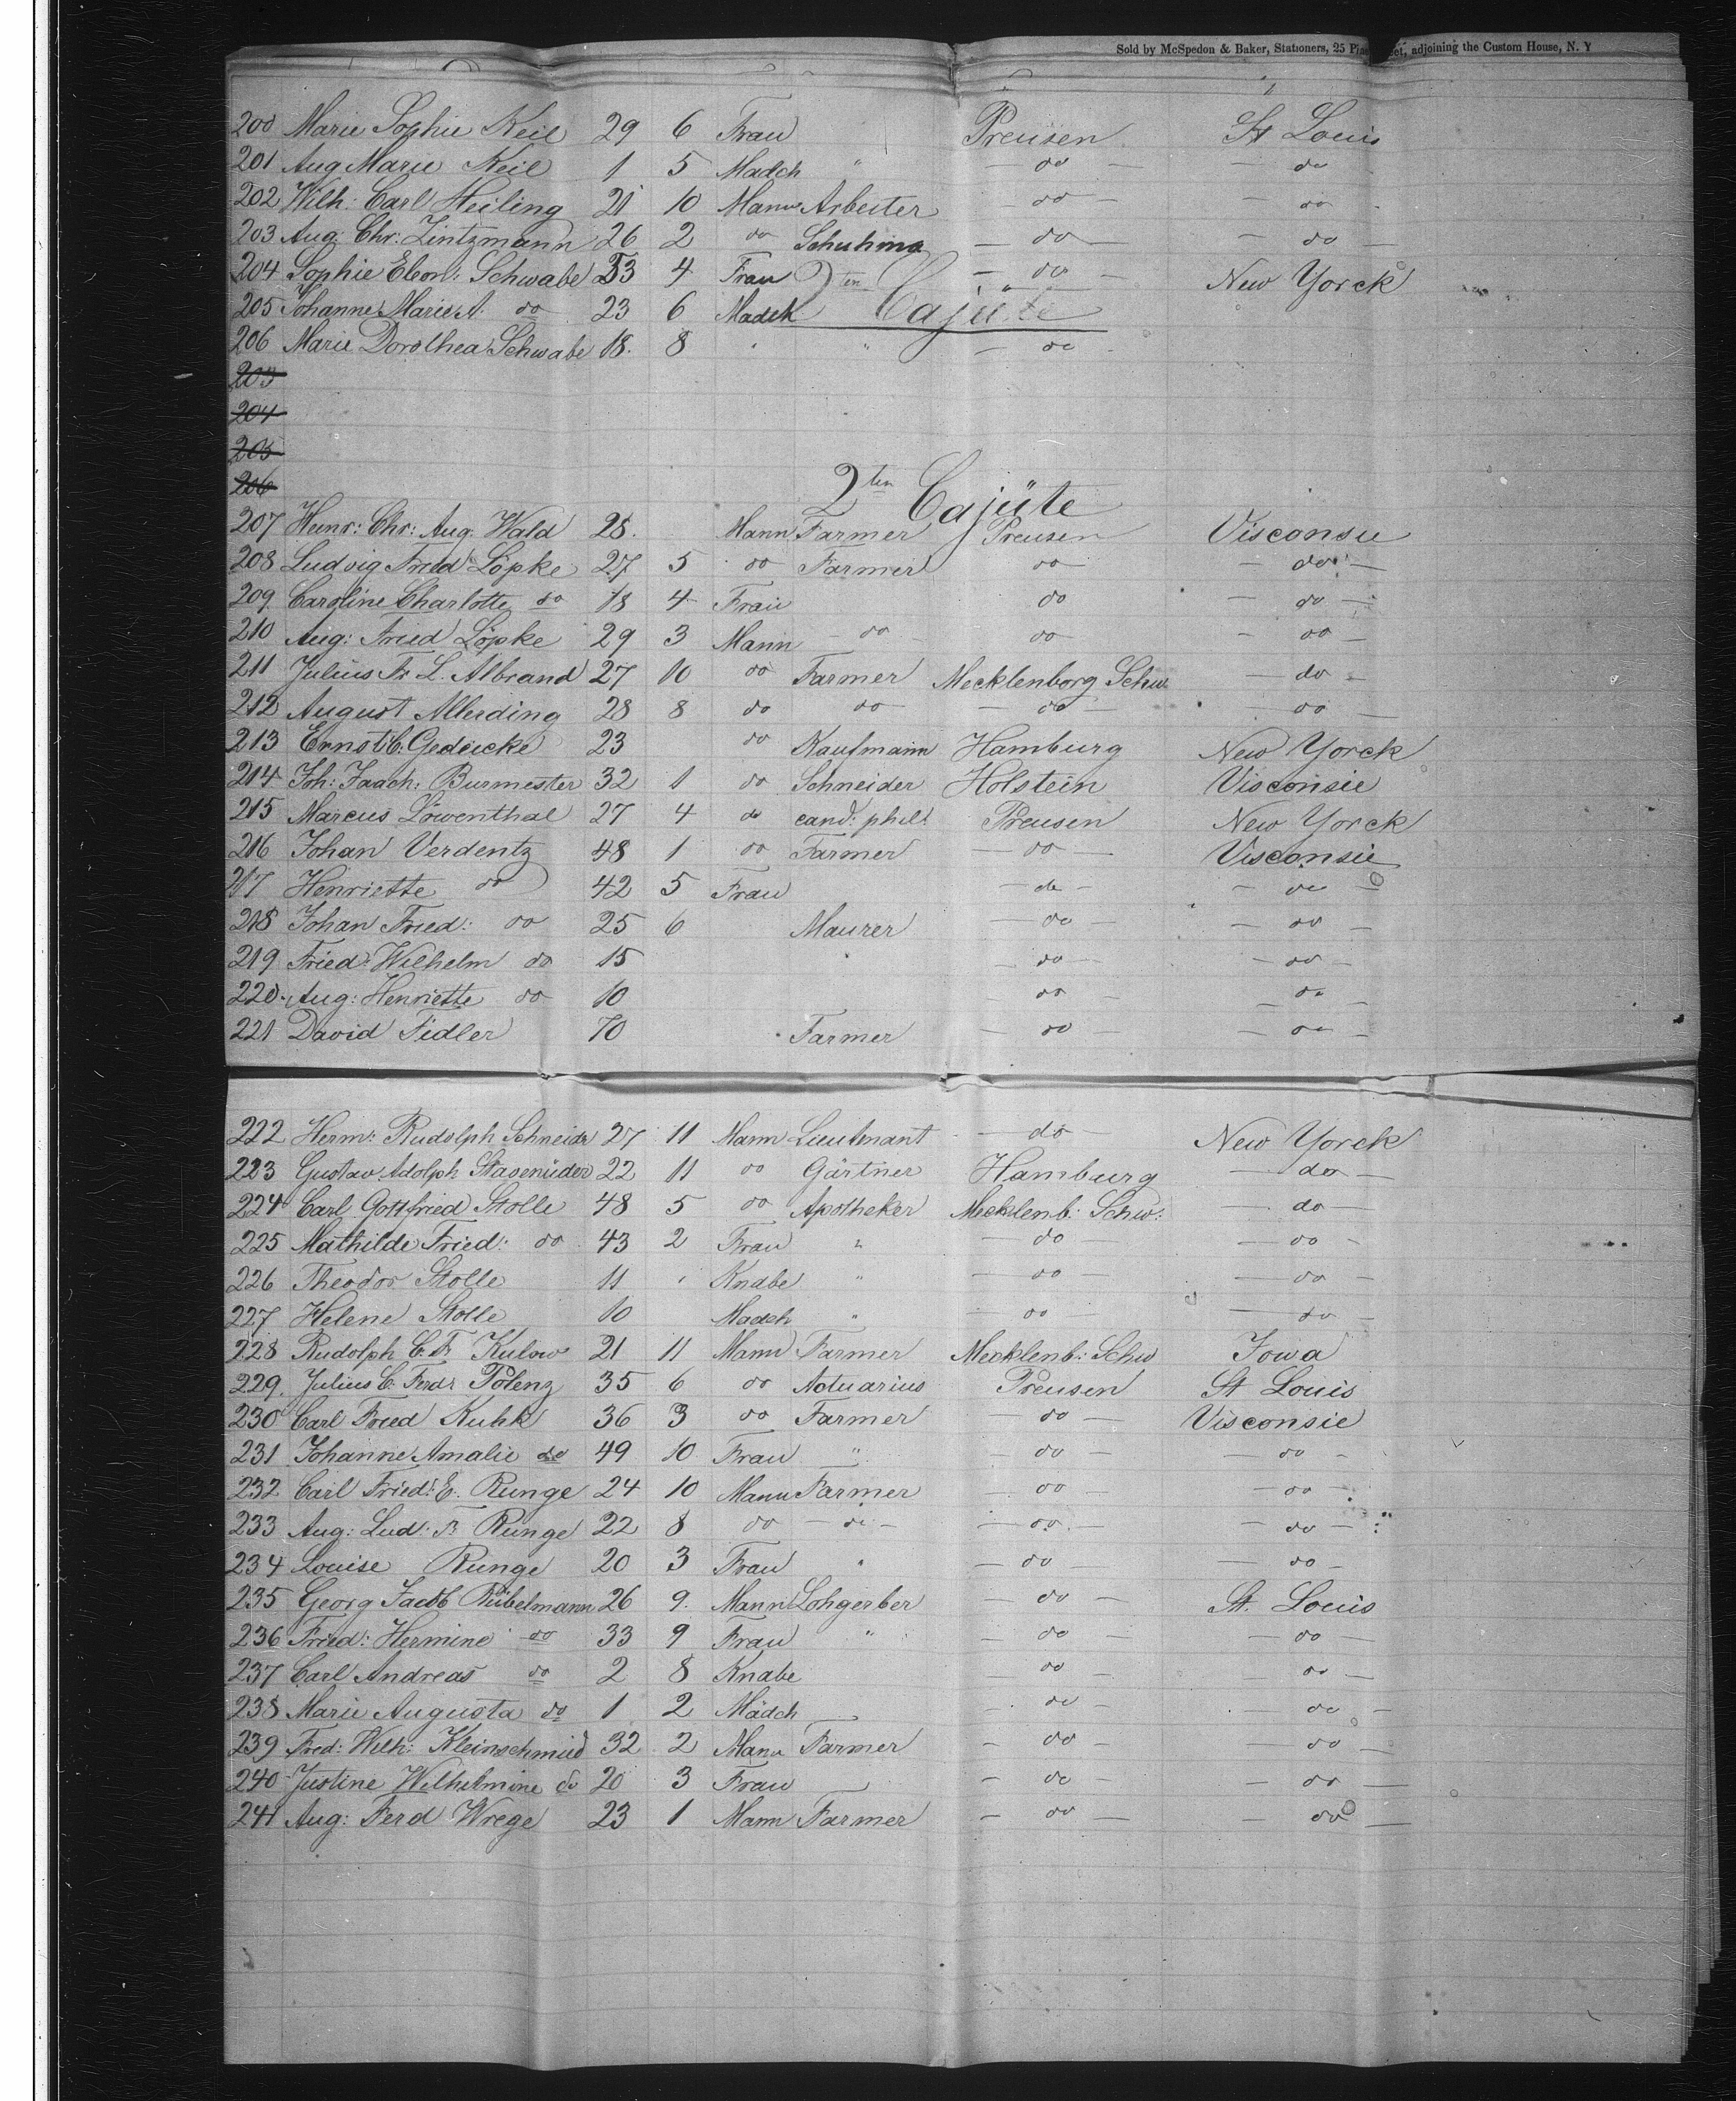 Sold by McSpedon & Baker, Stationers, 25 Pine Street, adjoining the Custom House, N. Y
200 Marie Sophie Keil 29 6 Frau Preusen St Louis
201 Aug Marie Keil 1 5 Madch " do do
202 Wilh: Carl Heiling 21 10 Mann Arbeiter do do
203 Aug: Chr: Zintzmann 26 2 do Schuhma do do
204 Sophie Eleon: Schwabe 53 4 Frau do New Yorck
2ten Cajüte
205 Johanne Marie A. do 23 6 Madch
206 Marie Dorothea Schwabe 18. 8 " " do
203
204
205
206
2ten Cajüte
207 Heinr: Chr: Aug. Wald 28. Mann Farmer Preusen Visconsie
208 Ludvig Fried Löpke 27 5 do Farmer do do
209. Caroline Charlotte do 18 4 Frau do do
210 Aug: Fried Löpke 29 3 Mann do do do
211 Julius Fr L. Albrand 27 10 do Farmer Mecklenborg Schw do
212 August Allerding 28 8 do do do do
213 Ernst C. Gedücke 23 do Kaufmann Hamburg New Yorck
214 Joh: Joach: Burmester 32 1 do Schneider Holstein Visconsie
215 Marcus Löwenthal 27 4 do cand: phil: Preusen New Yorck
216 Johan Verdentz 48 1 do Farmer do Visconsie
217 Henriette do 42 5 Frau do do
218 Johan Fried: do 25 6 Maurer do do
219 Fried: Wilhelm do 15 do do
220. Aug: Henriette do 10 do do
221 David Fidler 70 Farmer do do
222 Herm: Rudolph Schneider 27 11 Mann Lieutnant do New Yorck
223 Gustav Adolph 22 11 do Gärtner Hamburg do
224 Carl Gottfried Stolle 48 5 do Apotheker Mecklenb: Schw: do
225 Mathilde Fried: do 43 2 Frau " do do
226 Theodor Stolle 11 " Knabe " do do
227 Helene Stolle 10 Madch " do do
228 Rudolph C. F. Kulow 21 11 Mann Farmer Mecklenb: Schw Iowa
229. Julius C. Ferdr Polenz 35 6 do Actuarius Preusen St Louis
230 Carl Fried Kuhk 36 3 do Farmer do Visconsie
231 Johanne Amalie do 49 10 Frau " do do
232 Carl Fried: E. Runge 24 10 Mann Farmer do do
233 Aug: Lud: F. Runge 22 8 do do do do
234 Louise Runge 20 3 Frau " do do
235 Georg Jacob Rübelmann 26 9. Mann Lohgerber do St. Louis
236 Fried: Hermine do 33 9 Frau " do do
237 Carl Andreas do 2 8 Knabe do do
238 Marie Augusta do 1 2 Mädch do do
239 Fred: Wilh: Kleinschmied 32 2 Mann Farmer do do
240 Justine Wilhelmine do 20 3 Frau do do
241 Aug: Ferd Wrege 23 1 Mann Farmer do do